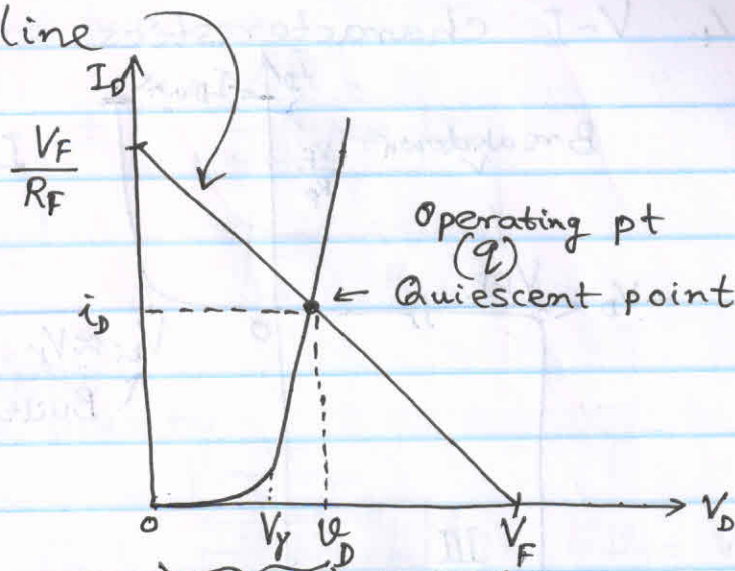 line
I_D
V_F
R_F
Operating pt
(q)
← Quiescent point
i_D
0
V_γ
v_D
V_F
V_D